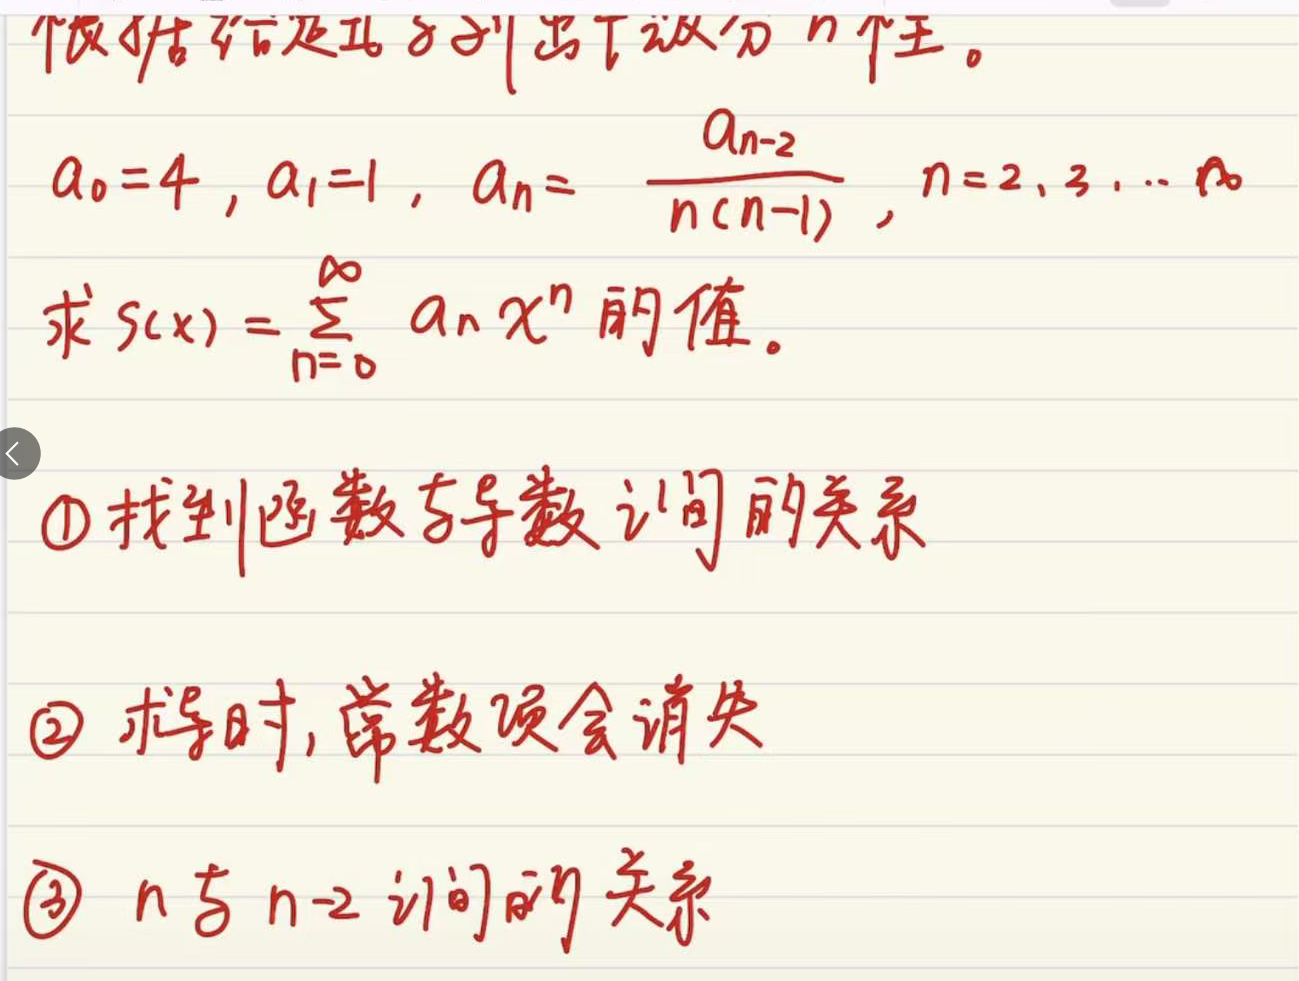 a₀=4, a₁=1, aₙ= aₙ₋₂ / n(n-1), n=2、3、… ∞
求 S(x) = ∑_{n=0}^{∞} aₙ xⁿ 的值。
①找到函数与导数之间的关系
② 求导时,常数项会消失
③ n与n-2之间的关系